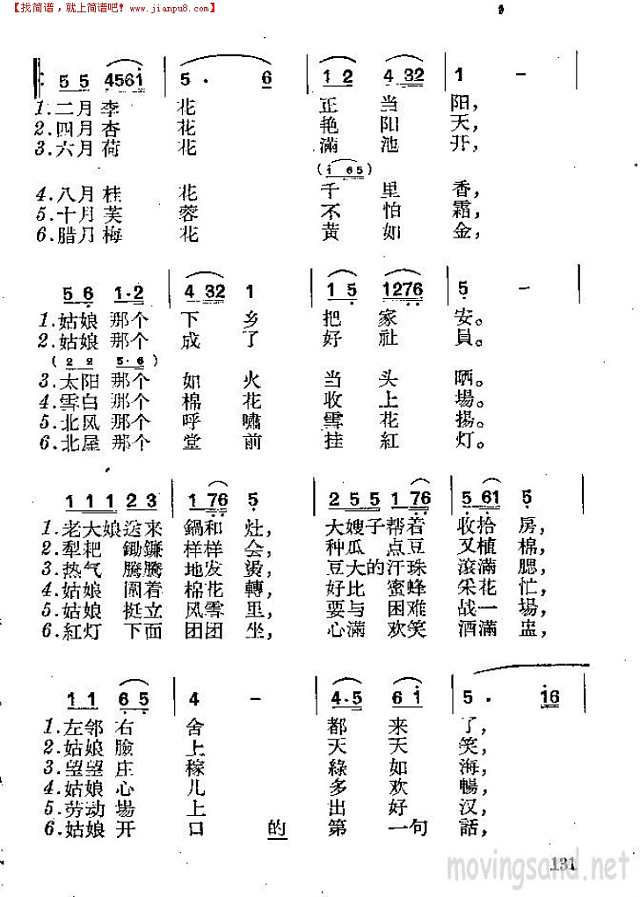 【找简谱，就上简谱吧！www.jianpu8.com】
5 5 4561 5 . 6 1 2 4 32 1 -
1.二月李花 正当阳，
2.四月杏花 艳阳天，
3.六月荷花 滿池开，
(i 65)
4.八月桂花 千里香，
5.十月芙蓉 不怕霜，
6.腊月梅花 黄如金，
5 6 1·2 4 32 1 1 5 1276 5 -
1.姑娘那个下乡 把家安。
2.姑娘那个成了 好社員。
(2 2 5·6)
3.太阳那个如火 当头晒。
4.雪白那个棉花 收上場。
5.北风那个呼嘯 雪花揚。
6.北屋那个堂前 挂紅灯。
111 23 1 76 5 2 5 5 1 76 5 61 5
1.老大娘送来鍋和灶， 大嫂子帮着收拾房，
2.犁耙鋤鐮样样会， 种瓜点豆又植棉，
3.热气騰騰地发燙， 豆大的汗珠滾滿腮，
4.姑娘圍着棉花轉， 好比蜜蜂采花忙，
5.姑娘挺立风雪里， 要与困难战一場，
6.紅灯下面团团坐， 心滿欢笑酒滿盅，
1 1 6 5 4 - 4·5 6 i 5 . i6
1.左邻右舍 都来了，
2.姑娘臉上 天天笑，
3.望望庄稼 綠如海，
4.姑娘心儿 多欢暢，
5.劳动場上 出好汉，
6.姑娘开口的第一句話，
131
movingsand.net